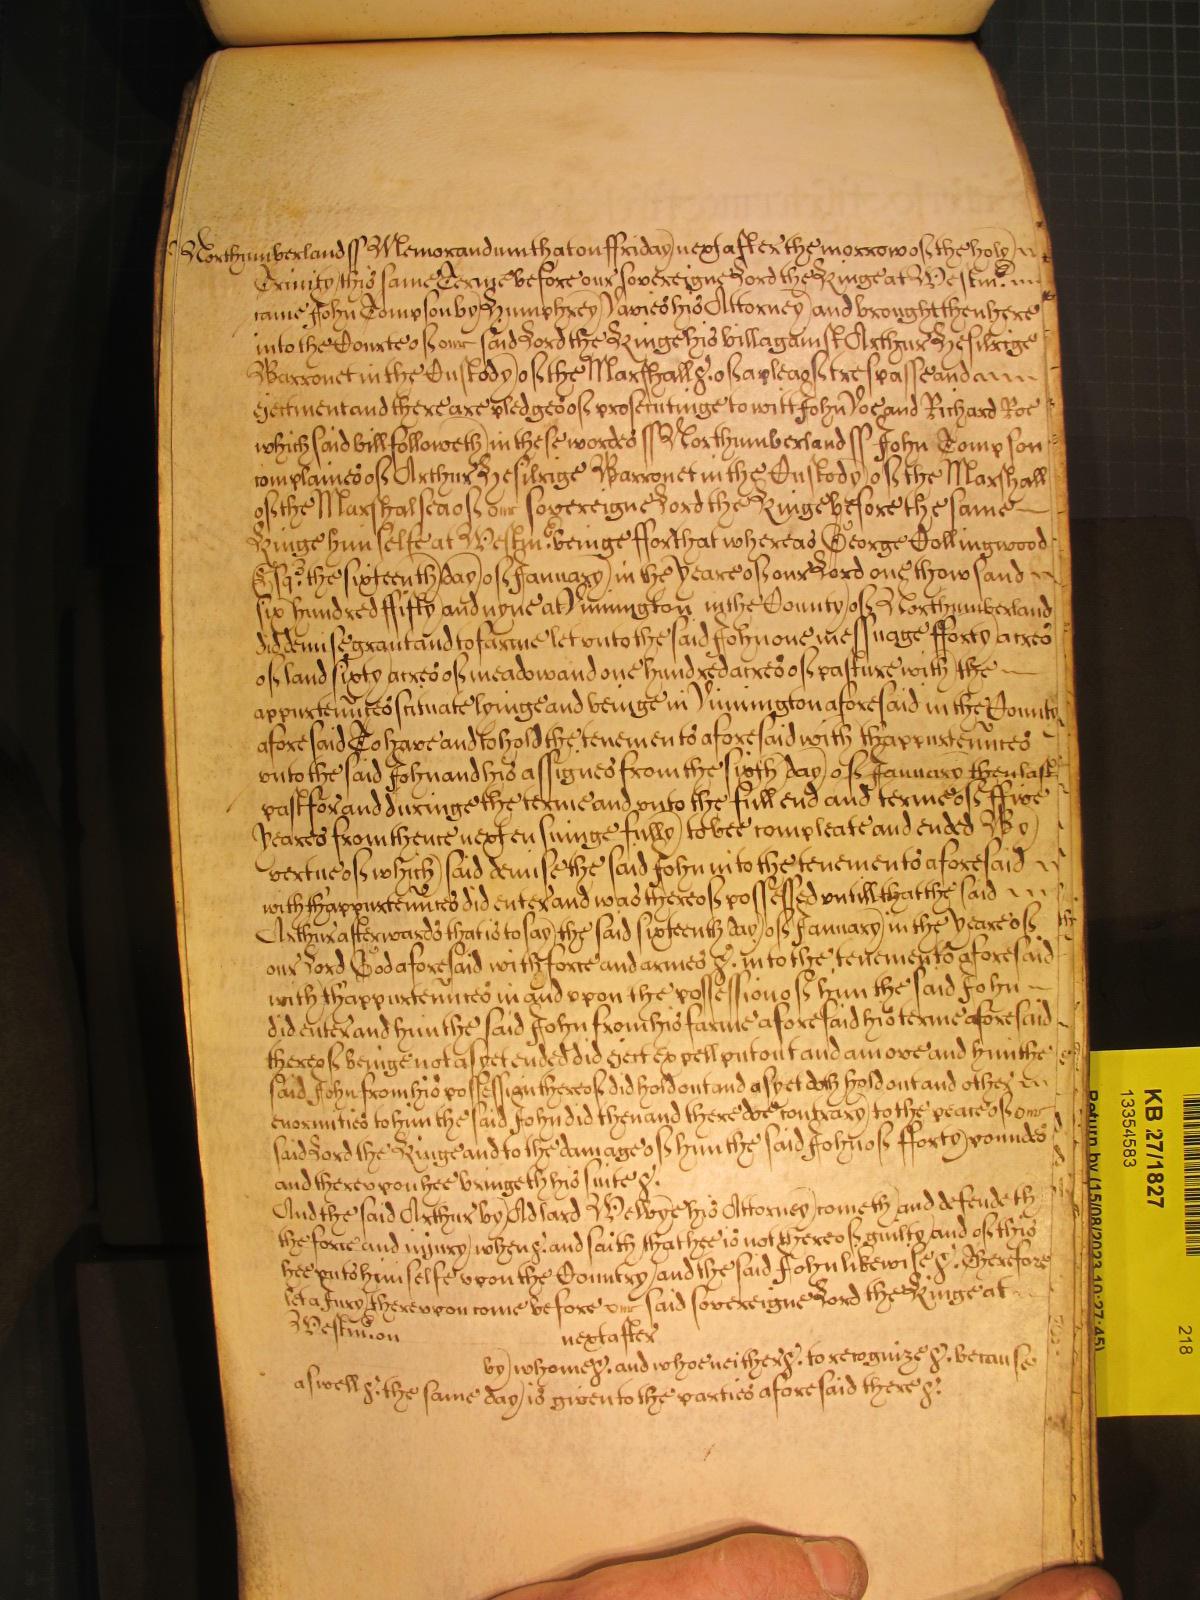 Northumberland ss Memorandum that on ffriday next after the morrow of the holy
Trinity this same Terme before our sovereigne Lord the Kinge at Westmr.
came John Tompson by Humphrey Davies his Attorney and brought then here
into the Courte of our said Lord the Kinge his bill against Arthur Hesilrige
Barronet in the Custody of the Marshall &c. of a plea of trespasse and
ejectment and there are pledges of prosecutinge to witt John Doe and Richard Roe
which said bill followeth in these wordes ss Northumberland ss John Tompson
complaines of Arthur Hesilrige Barronet in the Custody of the Marshall
of the Marshalsea of our sovereigne Lord the Kinge before the same
Kinge himselfe at Westmr. beinge ffor that whereas George Collingwood
Esqr. the sixteenth day of January in the yeare of our Lord one thowsand
six hundred ffifty and nyne at Dinnington in the County of Northumberland
did demise grant and to farme let unto the said John one messuage fforty acres
of land sixty acres of meadow and one hundred acres of pasture with the
appurtennces scituate lyinge and beinge in Dinnington aforesaid in the County
aforesaid To have and to hold the tenements aforesaid with thappurtennces
unto the said John and his assignes from the sixth day of January then last
past for and duringe the terme and unto the full end and terme of ffive
yeares from thence next ensuinge fully to bee compleate and ended By
vertue of which said demise the said John into the tenements aforesaid
with thappurtennces did enter and was thereof possessed untill that the said
Arthur afterwards that is to say the said sixteenth day of January in the yeare of
our Lord God aforesaid with force and armes &c. into the tenements aforesaid
with thappurtennces in and upon the possession of him the said John
did enter and him the said John from his farme aforesaid his terme aforesaid
thereof beinge not as yet ended did eject expell put out and amove and him the
said John from his possession thereof did hold out and as yet doth hold out and other
enormities to him the said John did then and there doe contrary to the peace of our
said Lord the Kinge and to the damage of him the said John of fforty poundes
and thereupon hee bringeth his suite &c.
And the said Arthur by Adlard Welbye his Attorney cometh and defendeth
the force and injury when &c. and saith that hee is not thereof guilty and of this
hee puts himselfe upon the Country and the said John likewise &c. Therefore
let a Jury thereupon come before our said sovereigne Lord the Kinge at
Westmr. on next after
by whome &c. and whoe neither &c. to recognize &c. because
aswell &c. the same day is given to the parties aforesaid there &c.
KB 27/1827
13354583
Return by (15/08/2023 10:27:45)
218